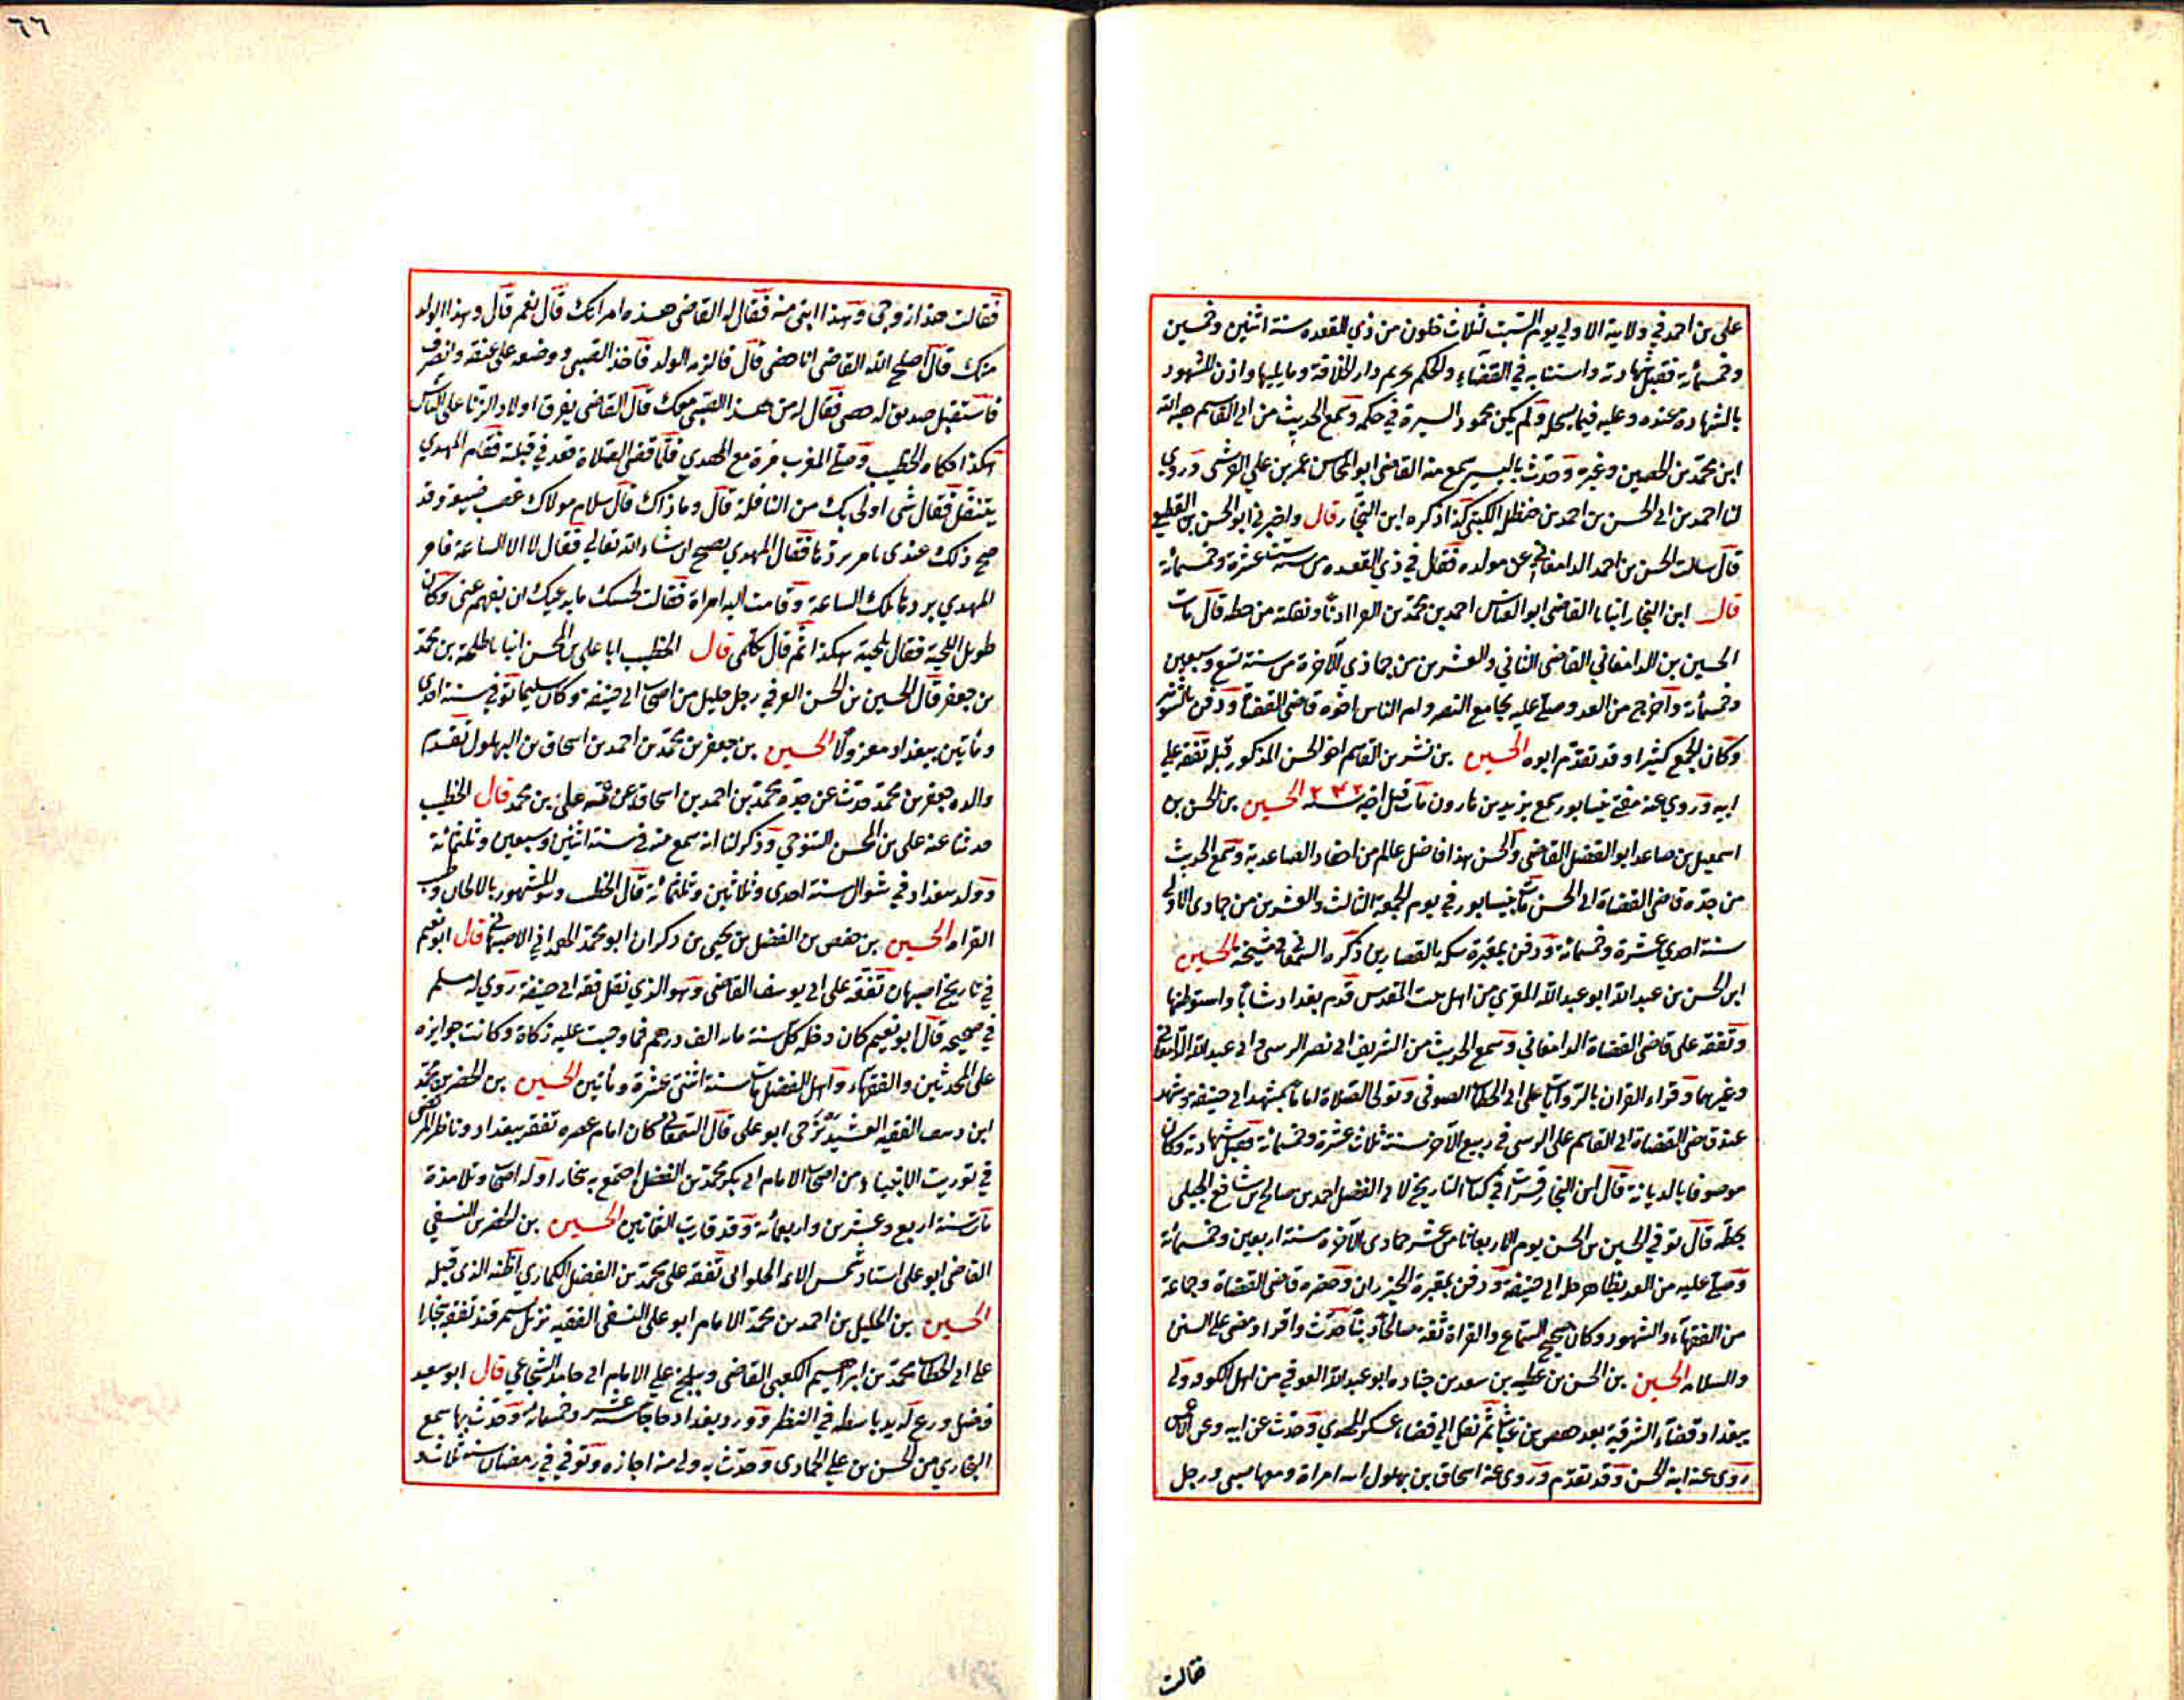 على بن احمد في ولايته الاولي يوم السبت لثلاث خلون من ذي القعده سنة اثنين وخمسين
وخمسمائة فقبل شهادته واستنابه في القضاء والحكم بحريم دار الخلافة وما يليها واذن للشهود
بالشهادة عنده وعليه فيما يسجله ولم يكن محمود السيرة في حكمه وسمع الحديث من ابى القاسم هبة الله
ابن محمد بن الحصين وغيره وحدث باليسير سمع منه القاضى ابو المحاسن عمر بن علي القرشى وروي
لنا احمد بن ابى الحسن بن احمد بن حنظل الكتبى كذا ذكره ابن النجار قال واخبرني ابو الحسن بن القطيعي
قال سالت الحسن بن احمد الدامغاني عن مولده فقال في ذي القعده من سنة ست عشرة وخمسمائة
قال ابن النجار انبانا القاضى ابو العباس احمد بن محمد بن الفرا اذنا ونقلته من خطه قال مات
الحسين بن الدامغاني القاضى الثاني والعشرين من جماذي الآخرة من سنة تسع وسبعين
وخمسمائة واخرج من الغد وصلى عليه بجامع القصر وام الناس اخوه قاضى القضاة ودفن بالشونيز
وكان الجمع كثيرا وقد تقدم ابوه الحسين بن بشر بن القاسم اخو الحسن المذكور قبله تفقه علي
ابيه وروي عنه مفتى نيسابور سمع يزيد بن هارون مات قبل اخيه سنة ٢٤٢ الحسين بن الحسن بن
اسمعيل بن صاعد ابو الفضل القاضى والحسن هذا فاضل عالم من احفاد الصاعدية وسمع الحديث
من جده قاضى القضاة ابى الحسن مات بنيسابور في يوم الجمعة الثالث والعشرين من جمادى الاولى
سنة احدي عشرة وخمسمائة ودفن بمقبرة سكة بالقصارين ذكره السمعاني في مشيخته الحسين
ابن الحسن بن عبد الله ابو عبد الله المقري من اهل بيت المقدس قدم بغداد شابا واستوطنها
وتفقه على قاضى القضاة الدامغاني وسمع الحديث من الشريف ابى نصر الزينبى وابى عبد الله الدامغاني
وغيرهما وقراء القران بالروايات على ابى الخطاب الصوفى وتولى الصلاة اماما بمشهد ابى حنيفة وشهد
عند قاضى القضاة ابى القاسم على الزينبى في ربيع الآخر سنة ثلاث عشرة وخمسمائة فقبل شهادته وكان
موصوفا بالديانة قال ابن النجار قرات في كتاب التاريخ لابى الفضل احمد بن صالح بن شافع الجيلى
بخطه قال توفي الحسين بن الحسن يوم الاربعا ثامن عشر جمادى الآخره سنة اربعين وخمسمائة
وصلى عليه من الغد بظاهر محلة ابى حنيفة ودفن بمقبرة الخيزران وحضره قاضى القضاة وجماعة
من الفقهاء والشهود وكان صحيح السماع والقراة ثقة صالحا دينا حدث واقراء ومضى على السنن
والسلامة الحسين بن الحسن بن عطية بن سعد بن جناده ابو عبد الله العوفى من اهل الكوفه ولى
ببغداد قضاء الشرقية بعد حفص بن غياث ثم نقل الي قضاء عسكر المهدي وحدث عن ابيه وعن الاعمش
روى عنه ابنه الحسن وقد تقدم وروى عنه اسحاق بن بهلول انه امراة ومعها صبى ورجل
فقالت
٦٦
فقالت هذا زوجى وهذا ابنى منه فقال له القاضى هذه امراتك قال نعم قال وهذا الولد
منك قال اصلح الله القاضى انا خصى قال فالزمه الولد فاخذ الصبى ووضعه على عنقه وانصرف
فاستقبل صديق له خصى فقال له من هذا الصبى معك قال القاضى يفرق اولاد الزنا على الناس
هكذا حكاه الخطيب وصلى المغرب مرة مع المهدي فلما قضى الصلاة قعد في قبلته فقام المهدي
يتنفل فقال شى اولى بك من النافلة قال وما ذاك قال سلام مولاك غصب ضيعة وقد
صح ذلك عندى تامر بردها فقال المهدي يصبح ان شاء الله تعالي فقال لا الا الساعة فامر
المهدي برد تلك الساعة وقامت اليه امراة فقالت لحيتك ما يدعيك ان تفهم عنى وكان
طويل اللحية فقال بلحيته هكذا ثم قال تكلمى قال الخطيب انا على بن المحسن انبانا طلحة بن محمد
بن جعفر قال الحسين بن الحسن العوفي رجل جليل من اصحاب ابى حنيفة وكان سليما توفي سنة احدى
ومأتين ببغداد معزولا الحسين بن جعفر بن محمد بن احمد بن اسحاق بن البهلول تقدم
والده جعفر بن محمد حدث عن جده محمد بن احمد بن اسحاق وعن عمه على بن محمد قال الخطيب
حدثنا عنه على بن المحسن التنوخي وذكر لنا انه سمع منه في سنة اثنين وسبعين وثلثمائة
وولد ببغداد في شوال سنة احدى وثلاثين وثلثمائة قال الخطيب وهو المشهور بالالحان وطيب
القراه الحسين بن حفص بن الفضل بن يحيى بن ذكوان ابو محمد الهمداني الاصبهانى قال ابو نعيم
في تاريخ اصبهان تفقه على ابى يوسف القاضى وهو الذي نقل فقه ابى حنيفة روي له مسلم
في صحيحه قال ابو نعيم كان دخله كل سنة مائة الف درهم فما وجبت عليه زكاة وكانت جوايزه
على المحدثين والفقهاء واهل الفضل مات سنة اثنتى عشرة ومأتين الحسين بن الخضر بن محمد
ابن يوسف الفقيه الفشيديزجى ابو على قال السمعانى كان امام عصره تفقه ببغداد وناظر المرتضى
في توريث الانبياء من اصحاب الامام ابى بكر محمد بن الفضل اجتمع به بخارا وله اصحاب وتلامذة
مات سنة اربع وعشرين واربعمائة وقد قارب الثمانين الحسين بن الخضر النسفي
القاضى ابو على استاد شمس الائمة الحلوانى تفقه على محمد بن الفضل الكماري اظنه الذى قبله
الحسين بن الخليل بن احمد بن محمد الامام ابو على النسفى الفقيه نزيل سمرقند تفقه ببخارا
على ابى الخطاب محمد بن ابراهيم الكعبى القاضى وببلخ على الامام ابى حامد الشجاعى قال ابو سعيد
فضل ورع له يد باسطة في النظر وورد بغداد حاجا سنة عشر وخمسمائة وحدث بها سمع
البخاري من الحسن بن على الحمادى وحدث به ولى منه اجازه وتوفي في رمضان سنة ثلاث